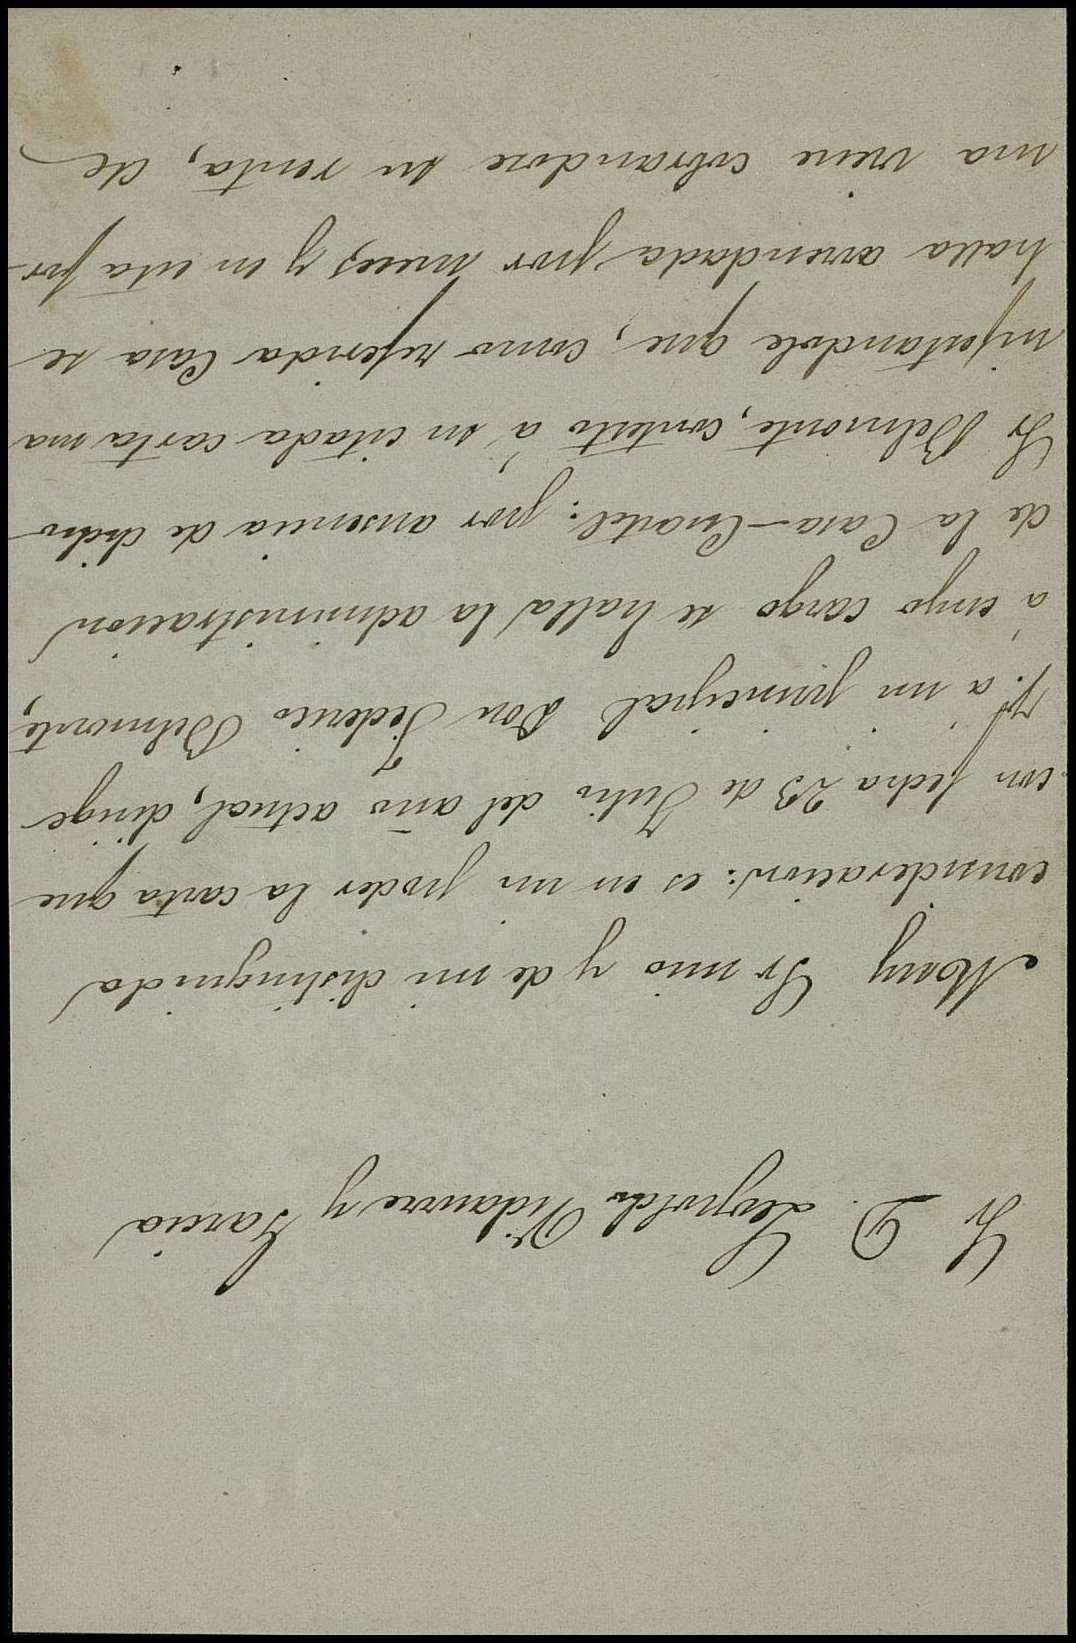 Sr D. Leopoldo Vidaurre y Garcia
Mouy Sr mio y de mi distinguida
consideracion: es en mi poder la carta que
con fecha 23 de Julio del año actual, dirige
V. á mi principal Don Federico Belmonte,
á cuyo cargo se halla la administracion
de la Casa-Cuartel: por ausencia de dicho
Sr Belmonte, contesto á su citada carta ma
nifestandole que, como referida Casa se
halla arrendada por meses y en esta for-
ma viene cobrandose su renta, de